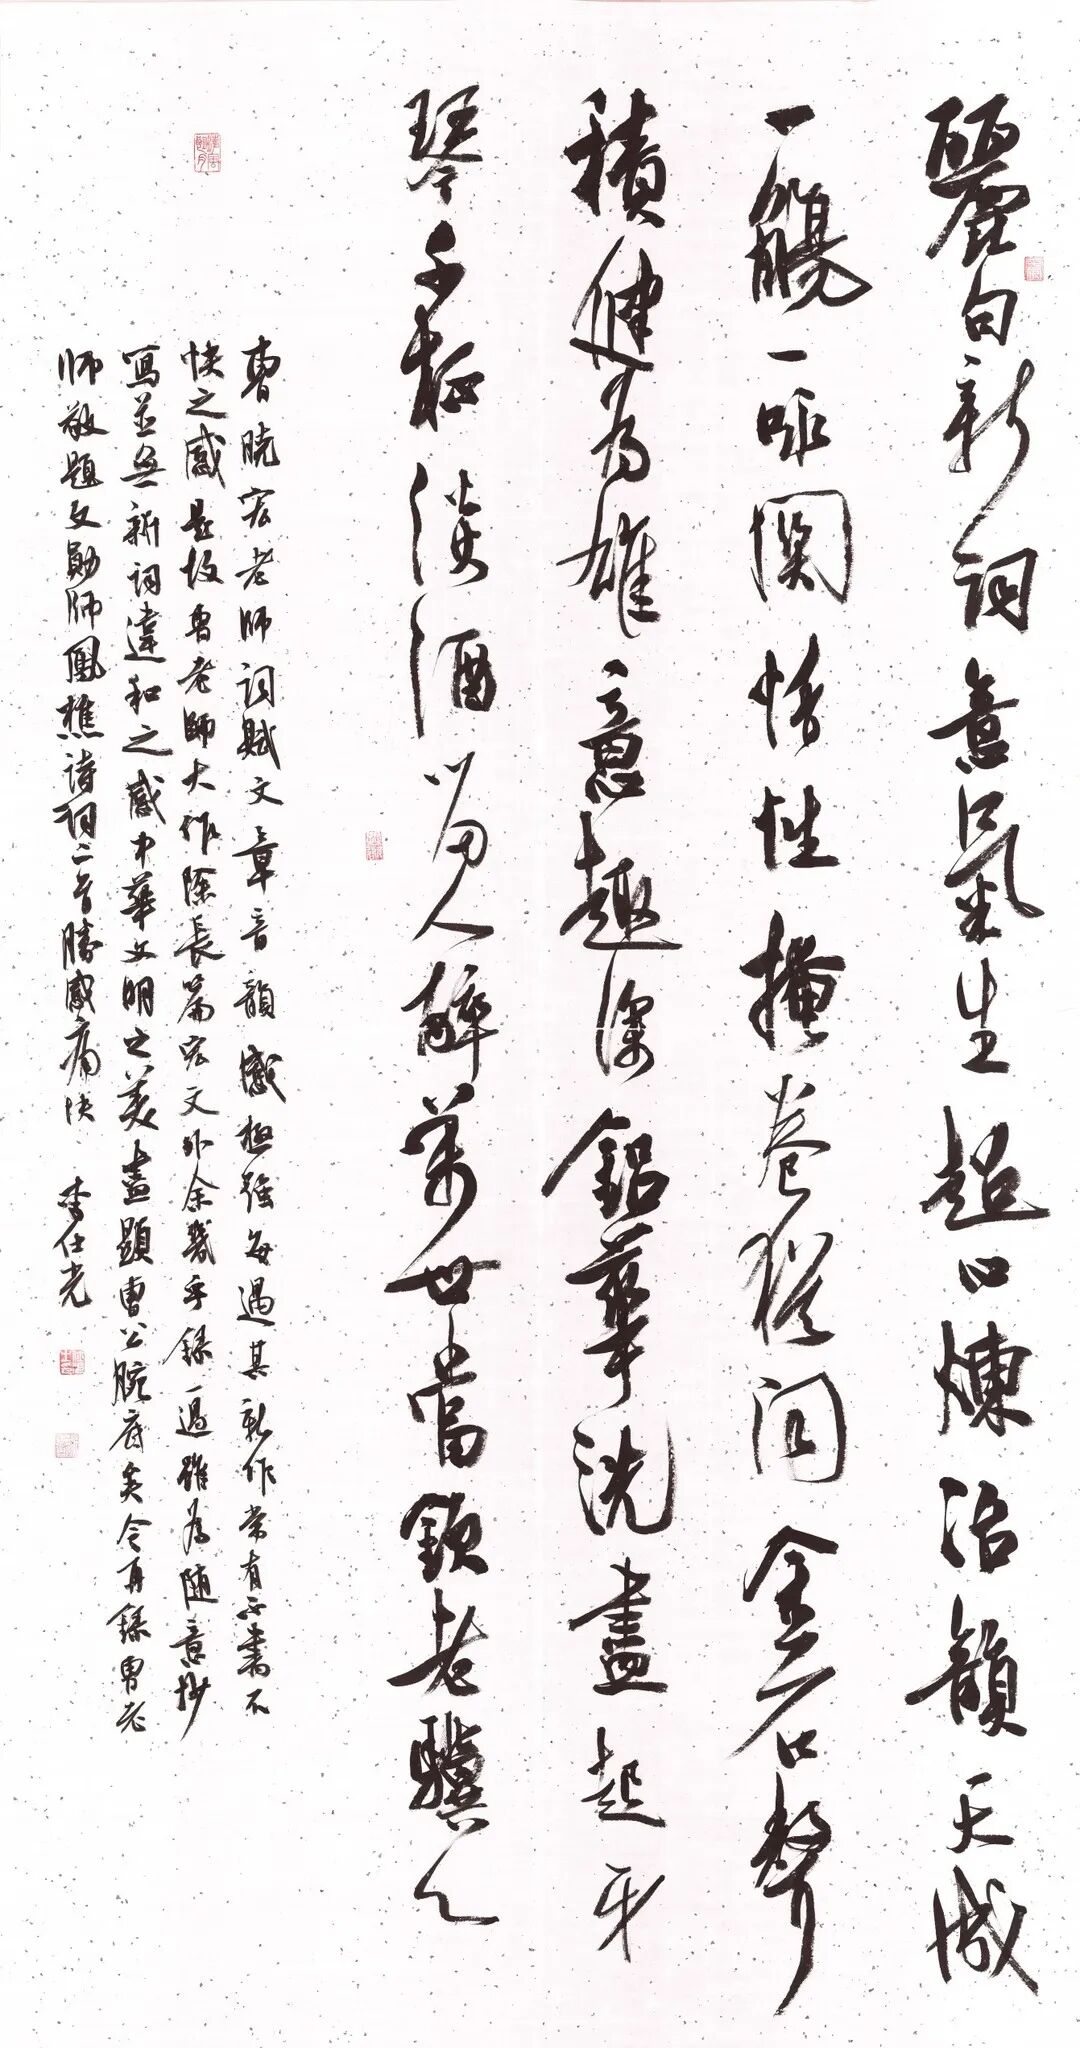 麗句新詞意氣生超心煉冶韻天成
一觴一詠関情性掩卷猶聞金石聲
積健為雄意趣深鉛華洗盡起牙
琴千杯淡酒留人醉萬世當欽老驥心
曹曉宏老師詞賦文章音韻感極強每遇其新作常有不書不
快之感是故曹老師大作除長篇宏文外余幾乎錄過雖為隨意抄
寫並無新詞違和之感中華文明之美盡顯曹公腕底矣今再錄曹老
師敬題文勛師鳳樵詩詞二首勝感痛快 李仕光